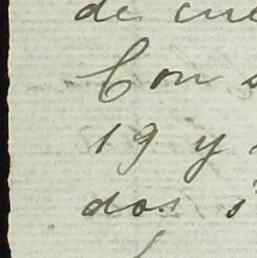 de cue
Con
19 y
dos